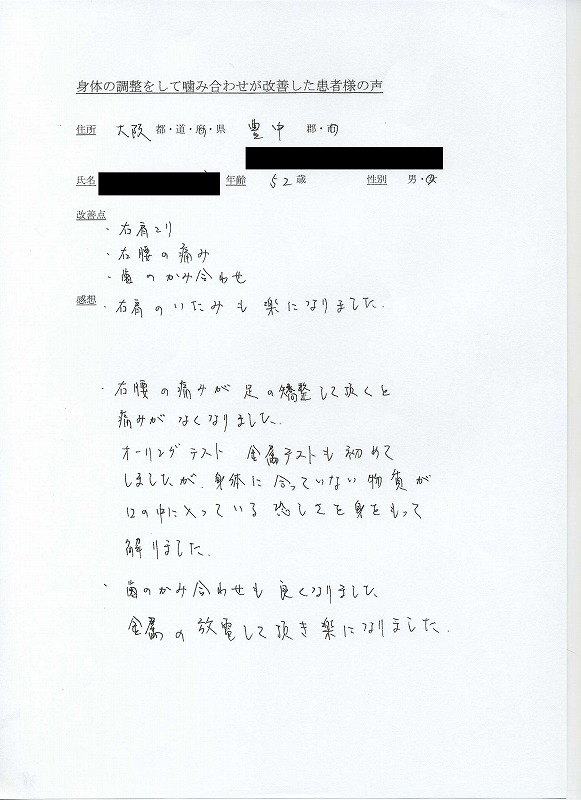 身体の調整をして噛み合わせが改善した患者様の声
住所 大阪 都・道・府・県 豊中 郡・市
氏名 年齢 52歳 性別 男・女
改善点
・右肩こり
・右腰の痛み
・歯のかみ合わせ
感想 ・右肩のいたみも楽になりました.
・右腰の痛みが足の矯整して頂くと
痛みがなくなりました.
オーリングテスト 金属テストも初めて
しましたが、身体に合っていない物質が
口の中に入っている恐しさを身をもって
解りました.
・歯のかみ合わせも良くなりました
金属の放電して頂き楽になりました.